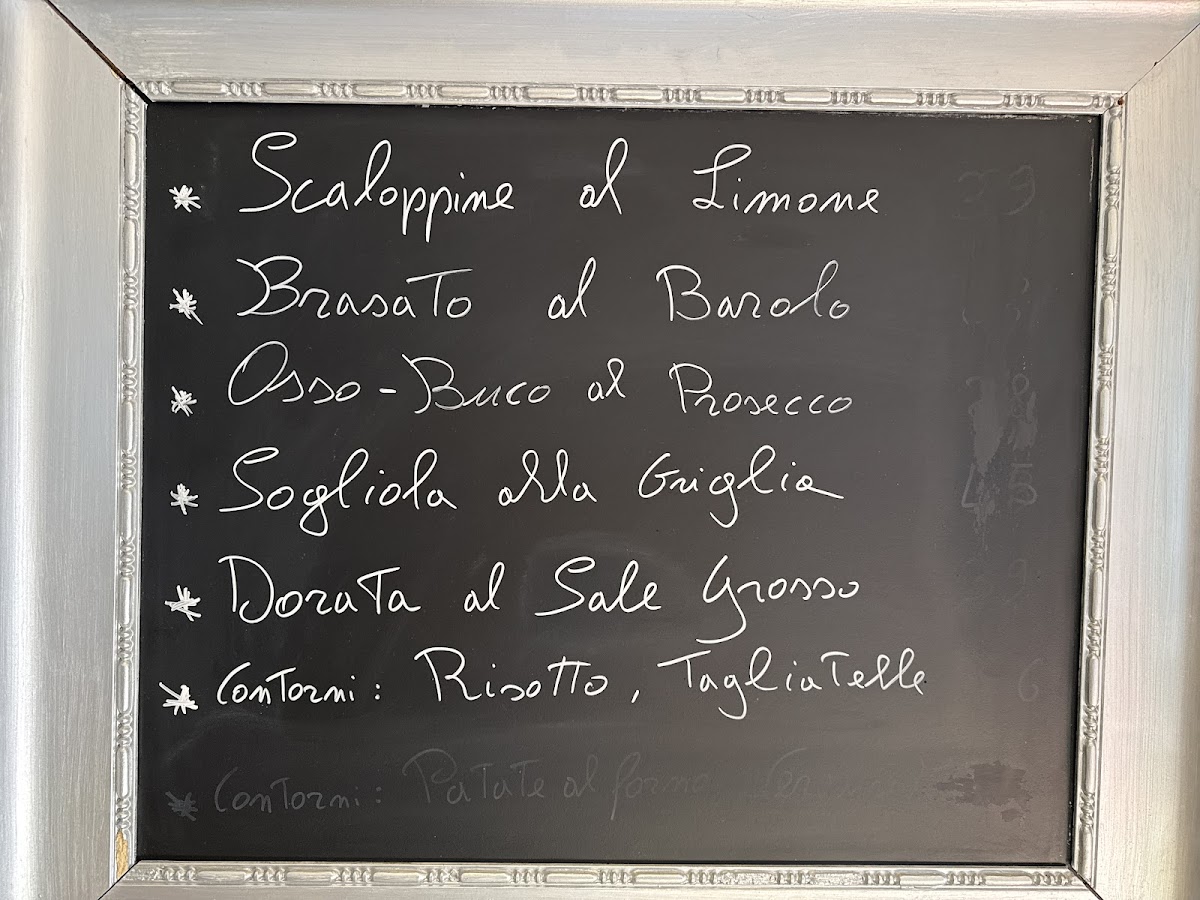 * Scaloppine al Limone
* Brasato al Barolo
* Osso-Buco al Prosecco
* Sogliola alla Griglia
* Dorata al Sale Grosso
* Contorni: Risotto, Tagliatelle
* Contorni: Patate al forno